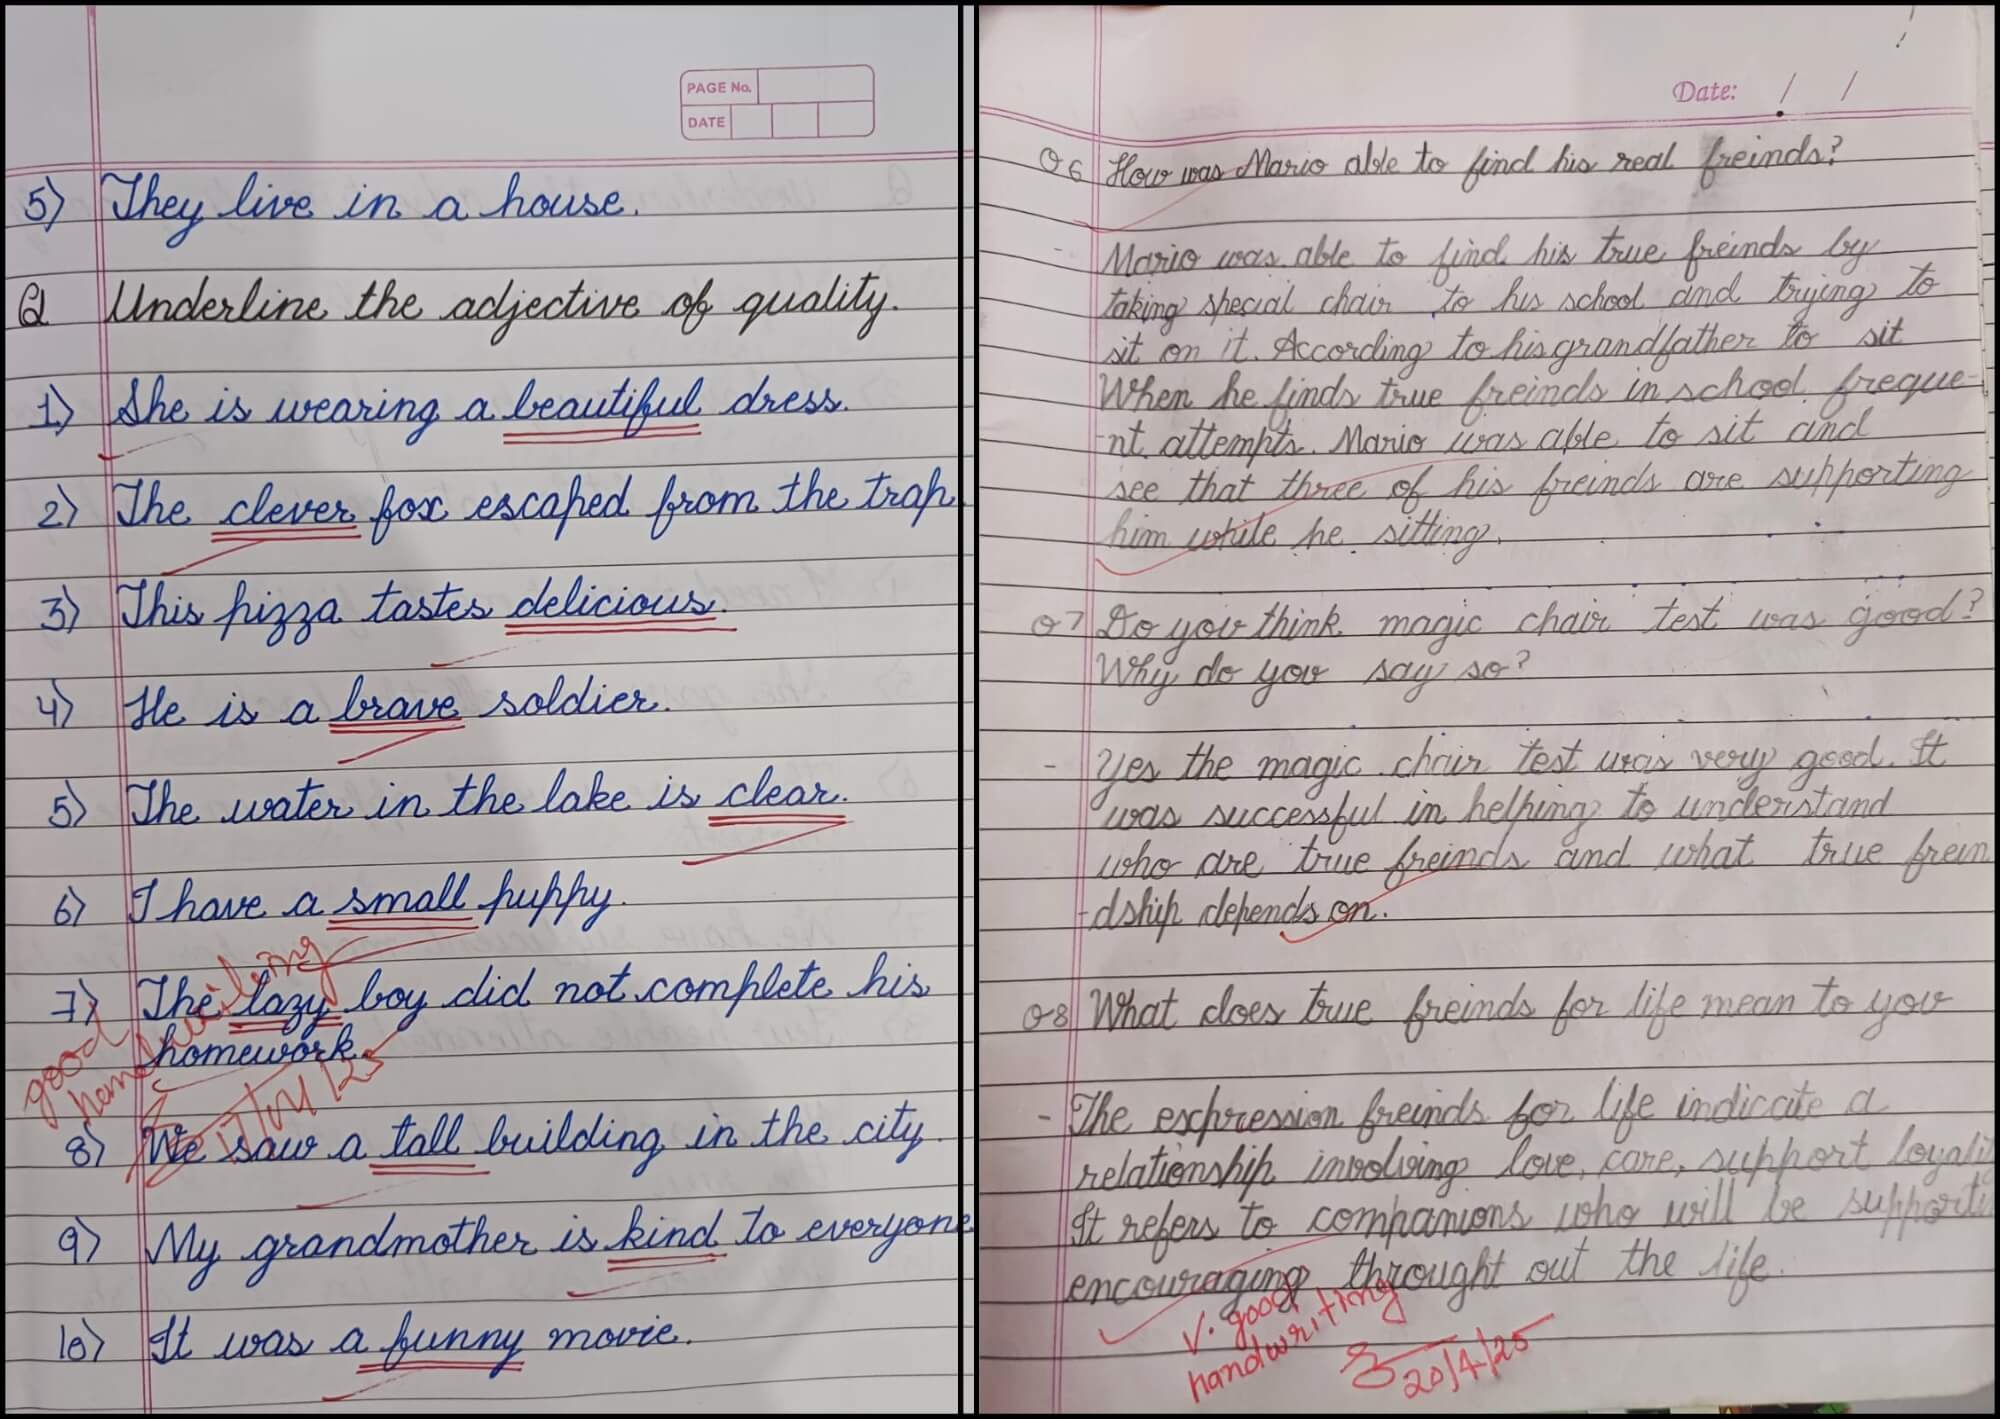 PAGE No.
DATE
5) They live in a house.
Q Underline the adjective of quality.
1) She is wearing a beautiful dress.
2) The clever fox escaped from the trap.
3) This pizza tastes delicious.
4) He is a brave soldier.
5) The water in the lake is clear.
6) I have a small puppy.
7) The lazy boy did not complete his
homework.
8) We saw a tall building in the city.
9) My grandmother is kind to everyone
10) It was a funny movie.
good
handwriting
17/04/25
Date: / /
Q6 How was Mario able to find his real freinds?
- Mario was able to find his true freinds by
taking special chair to his school and trying to
sit on it. According to his grandfather to sit
When he finds true freinds in school. freque-
-nt attempts. Mario was able to sit and
see that three of his freinds are supporting
him while he sitting.
Q7 Do you think magic chair test was good?
Why do you say so?
- Yes the magic chair test was very good. It
was successful in helping to understand
who are true freinds and what true frein
-dship depends on.
Q8 What does true freinds for life mean to you
- The expression freinds for life indicate a
relationship involving love, care, support loyali
It refers to companions who will be supporti
encouraging throught out the life.
V. good
handwriting
20/4/25